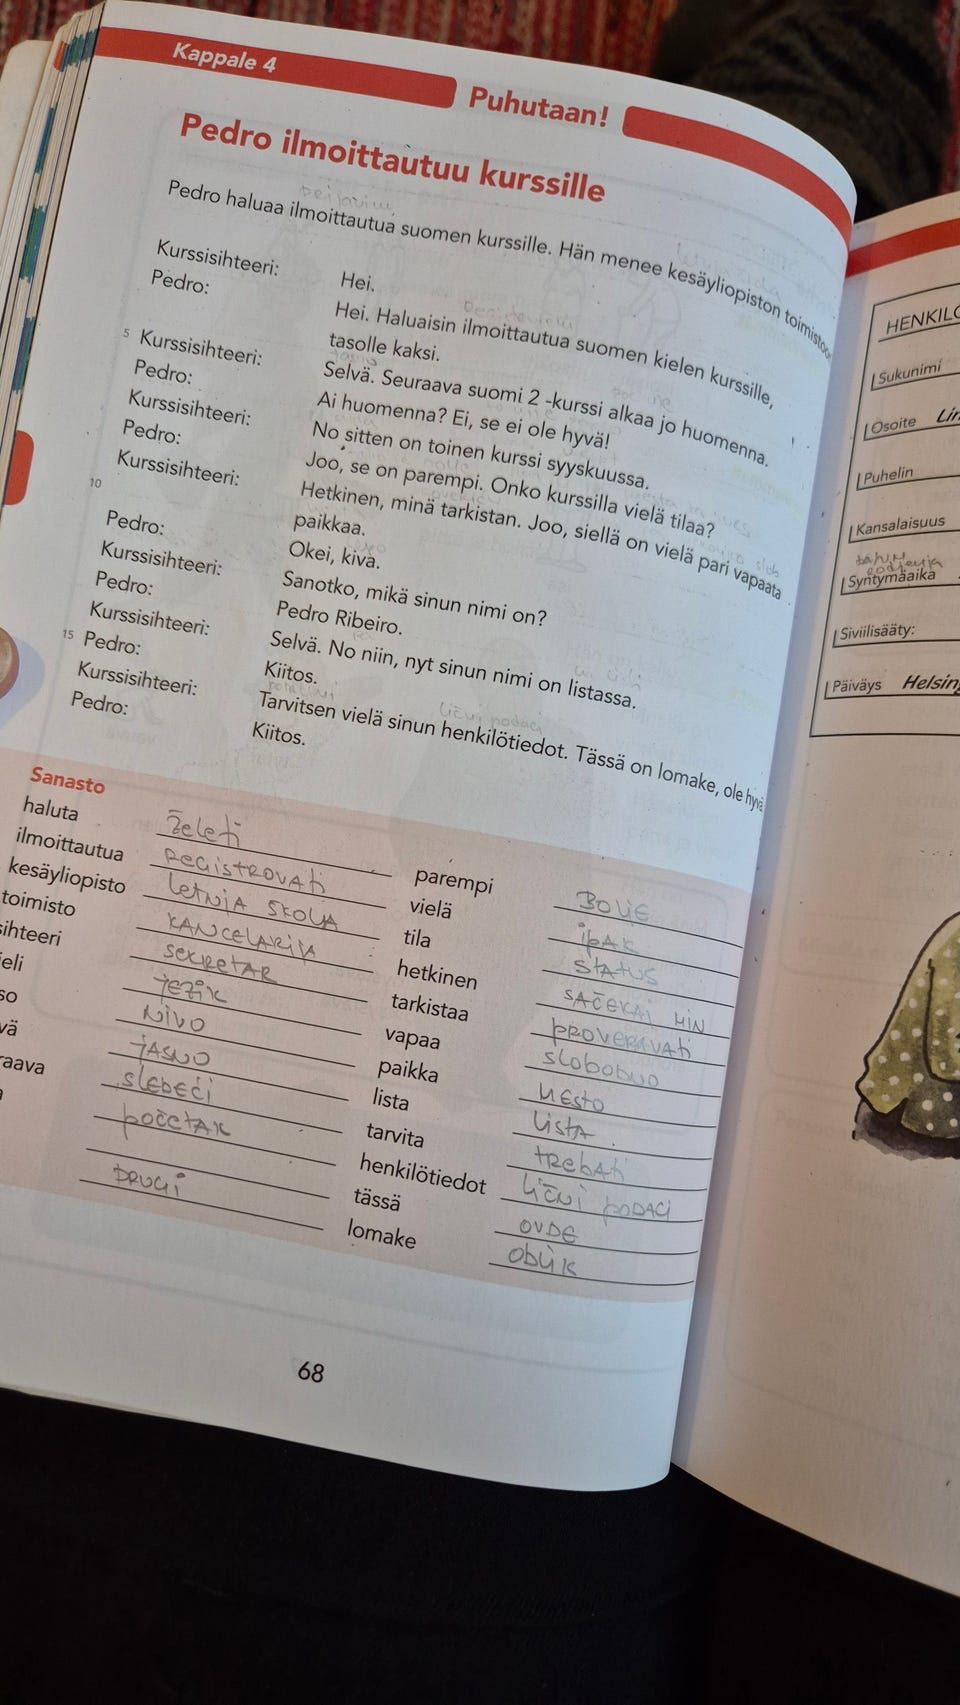 Kappale 4
Puhutaan!
Pedro ilmoittautuu kurssille
Pedro haluaa ilmoittautua suomen kurssille. Hän menee kesäyliopiston toimistoon
Kurssisihteeri: Hei.
Pedro: Hei. Haluaisin ilmoittautua suomen kielen kurssille,
tasolle kaksi.
5 Kurssisihteeri: Selvä. Seuraava suomi 2 -kurssi alkaa jo huomenna.
Pedro: Ai huomenna? Ei, se ei ole hyvä!
Kurssisihteeri: No sitten on toinen kurssi syyskuussa.
Pedro: Joo, se on parempi. Onko kurssilla vielä tilaa?
Kurssisihteeri: Hetkinen, minä tarkistan. Joo, siellä on vielä pari vapaata
10 paikkaa.
Pedro: Okei, kiva.
Kurssisihteeri: Sanotko, mikä sinun nimi on?
Pedro: Pedro Ribeiro.
Kurssisihteeri: Selvä. No niin, nyt sinun nimi on listassa.
15 Pedro: Kiitos.
lični podaci
Kurssisihteeri: Tarvitsen vielä sinun henkilötiedot. Tässä on lomake, ole hyvä
Pedro: Kiitos.
Sanasto
haluta želeti
ilmoittautua registrovati
kesäyliopisto letnja skola
toimisto kancelarija
sihteeri sekretar
ieli jezik
so nivo
vä jasno
raava slebeći
a početak
drugi
parempi bolje
vielä ipak
tila status
hetkinen sačekaj min
tarkistaa proveravati
vapaa slobodno
paikka mesto
lista lista
tarvita trebati
henkilötiedot lični podaci
tässä ovde
lomake oblik
68
HENKILÖ
Sukunimi
Osoite Lin
Puhelin
Kansalaisuus
Syntymäaika
Siviilisääty:
Päiväys Helsing